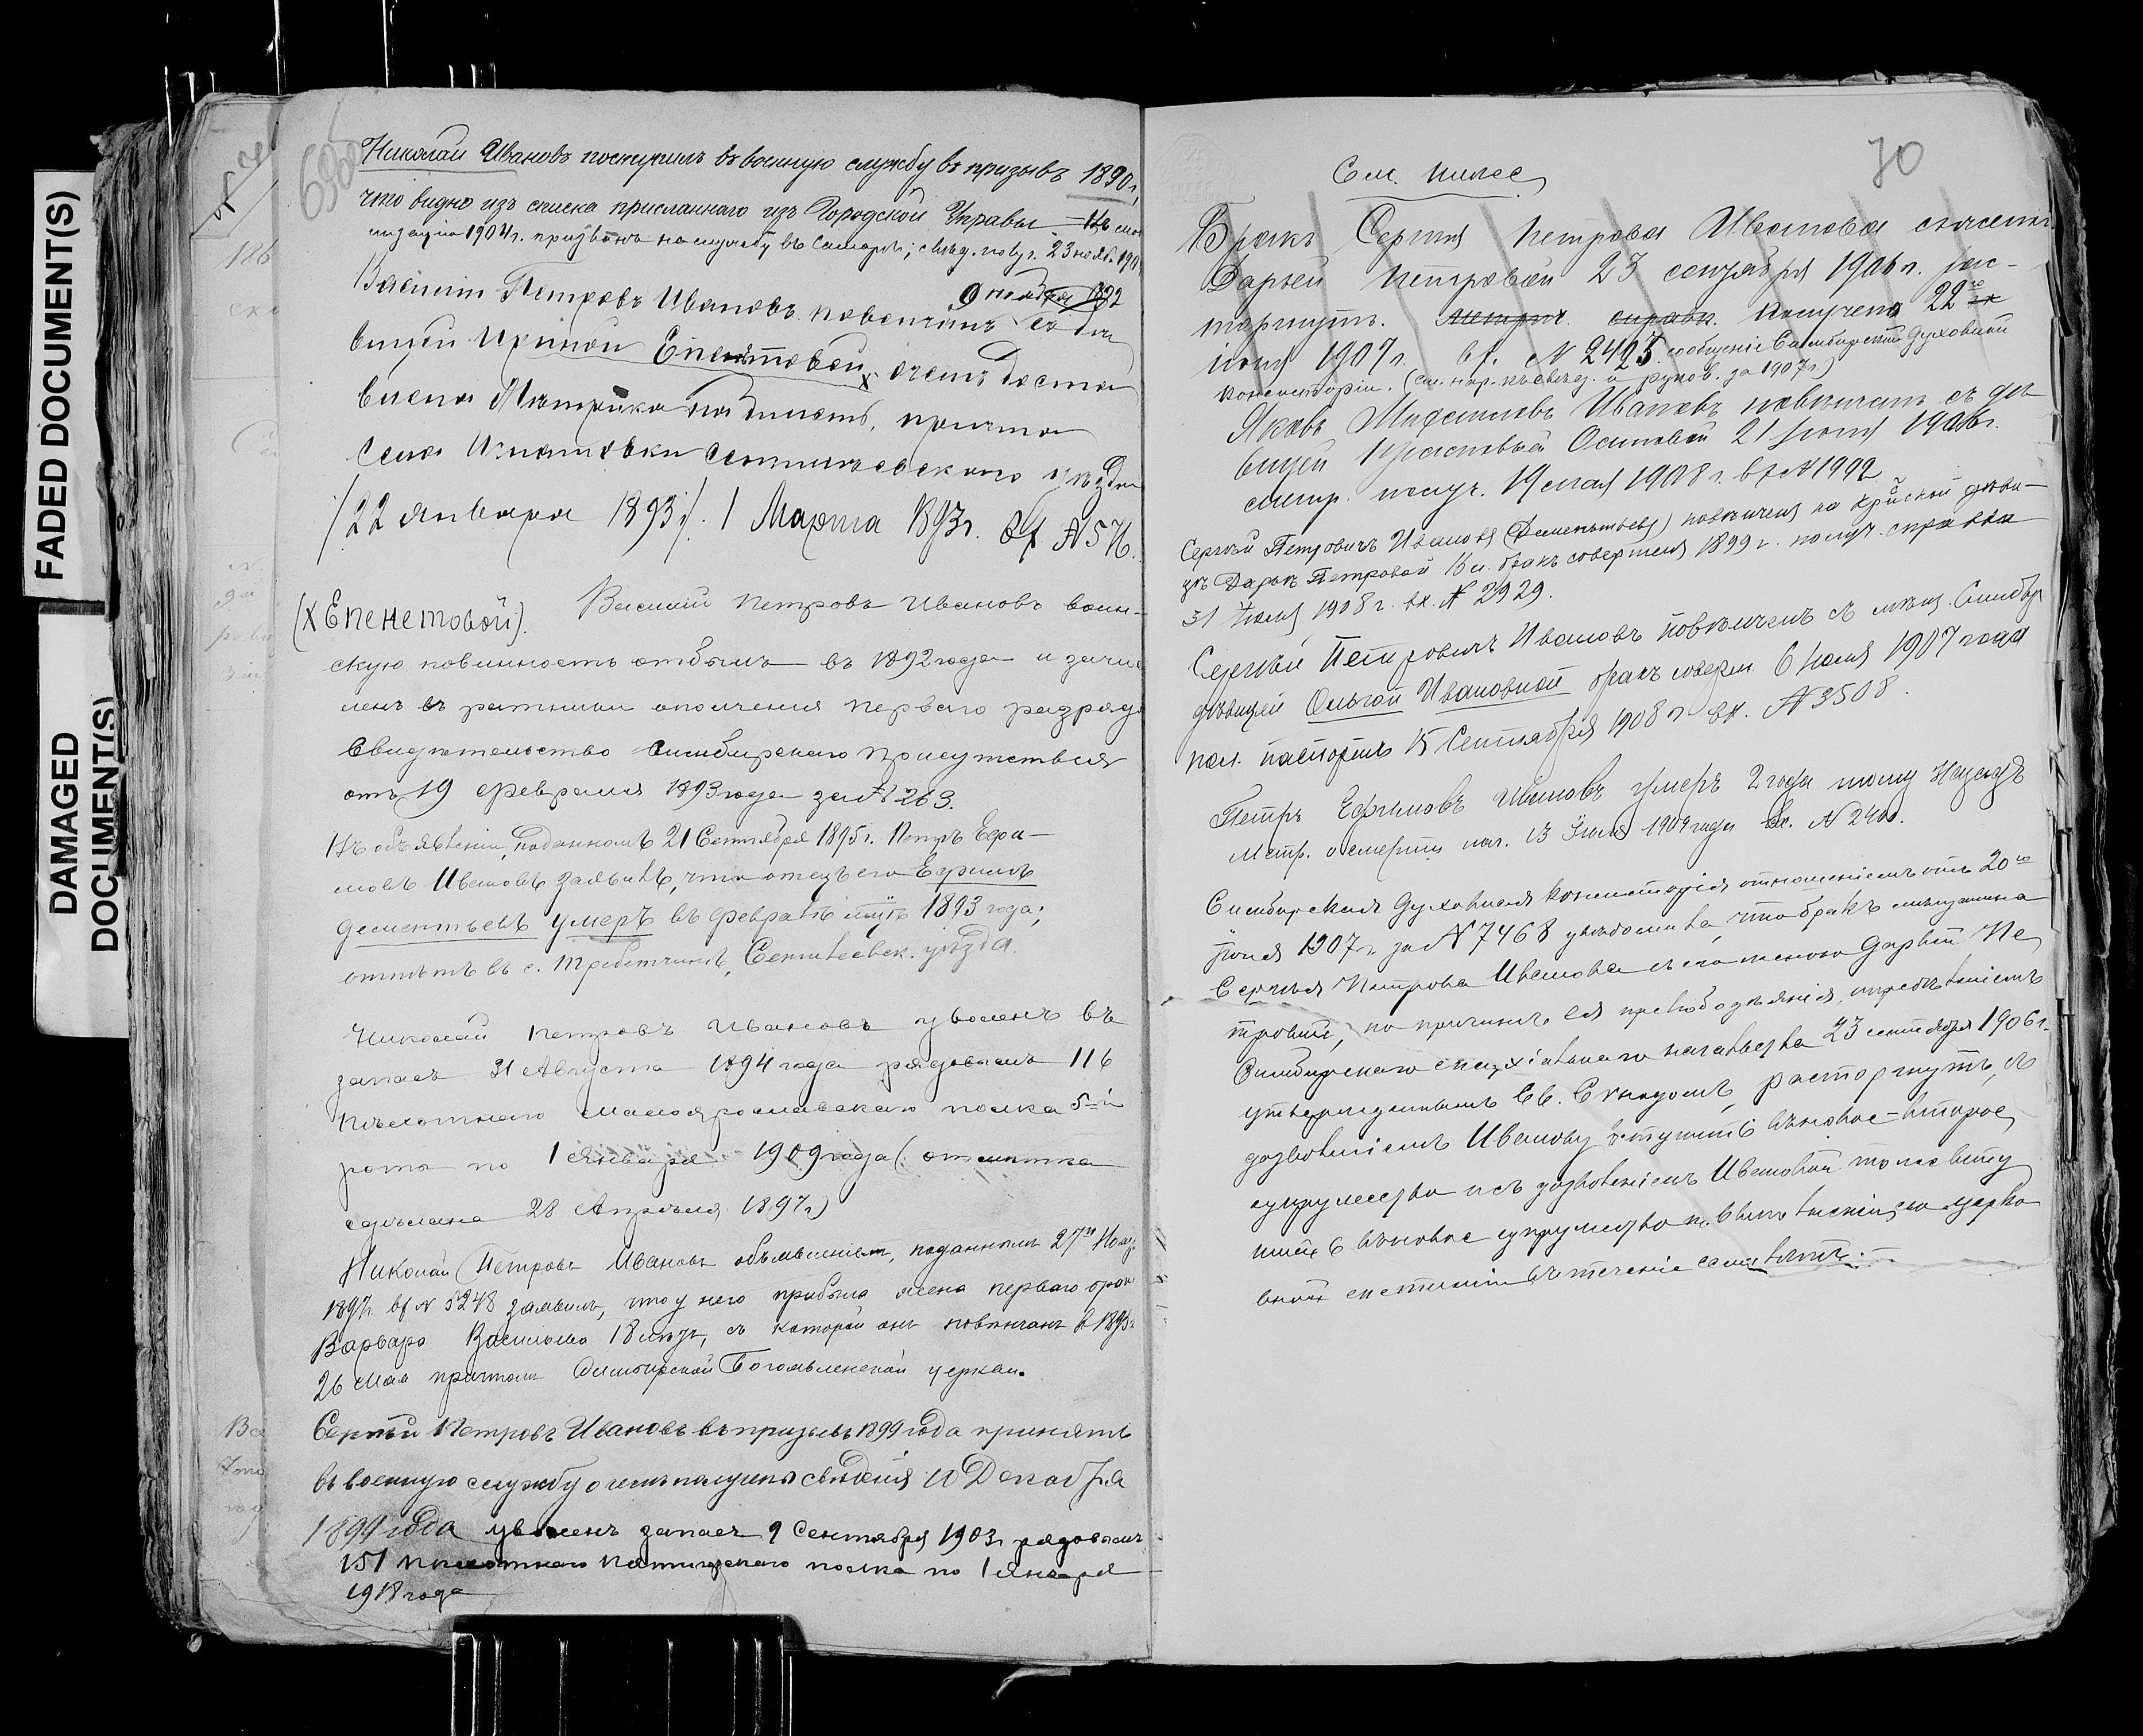 FADED DOCUMENT(S)
DAMAGED
DOCUMENT(S)
Николай Ивановъ поступилъ въ военную службу въ призывъ 1890 г,
что видно изъ списка присланнаго изъ Городской Управы
1904 г. призванъ на службу въ Самаръ; 23 нояб. 190
9 ноября 1892
Василій Петровъ Ивановъ повенчанъ съ дѣ
вицей Ириной Епенѣтовой х о чемъ доста
влена Метрика
села Игнатовки Сенгилеевскаго уѣзда
/22 Января 1893 г/. 1 Марта 1893 г. вх № 576.
(х Епенетовой). Василій Петровъ Ивановъ воин-
скую повинность отбылъ въ 1892 года и зачис
ленъ въ ратники ополченія перваго разряда
Свидѣтельство Симбирскаго присутствія
отъ 19 февраля 1893 года за № 263.
Въ объявленіи, поданномъ 21 Сентября 1895 г. Петръ Ефи-
мовъ Ивановъ заявилъ, что отецъ его Ефимъ
Дементьевъ умеръ въ февралѣ 1893 года;
отпѣтъ въ с. Сенгилеевск. уѣзда.
Николай Петровъ Ивановъ уволенъ въ
запасъ 31 Августа 1894 года рядовымъ 116
пѣхотнаго Малоярославскаго полка 5-й
роты по 1 Января 1909 года (отмѣтка
сдѣлана 28 Апрѣля 1897 г)
Николай Петровъ Ивановъ объявленіемъ, поданнымъ 27го
1897 г. вх № 5248 заявилъ, что у него прибыла жена перваго брака
Варвара Васильева 18 лѣтъ, съ которой онъ повѣнчанъ в 1895 г
26 Мая причтомъ Симбирской Богоявленской церкви.
Сергѣй Петровъ Ивановъ въ призывъ 1899 года принятъ
въ военную службу о чемъ получены свѣдѣнія 10 Декабря
1899 года уволенъ запасъ 9 Сентября 1903 г рядовымъ
151 пѣхотнаго Пятигорскаго полка по 1 Января
1918 года
70
См. ниже
Бракъ Сергѣя Петрова Иванова съ женой
Дарьей Петровой 23 сентября 1906 г. рас-
торгнутъ. Метрич. справк. Получено 22го
іюня 1907 г. вх. № 2425 сообщеніе Симбирской Духовной
Консисторіи. (см. нар. къ свѣд. и руков. за 1907 г.)
Яковъ Ивановъ повѣнчанъ съ дѣ-
вицей Осиповой 21 1906 г.
метр. получ. 19 мая 1908 г. вх № 1992
Сергѣй Петровичъ Ивановъ (Дементьевъ) повѣнчанъ на кр-ской дѣви-
цѣ Дарьѣ Петровой бракъ совершенъ 1899 г. получ. справка
31 Іюля 1908 г. вх. № 2929.
Сергѣй Петровичъ Ивановъ повѣнчанъ съ мѣщ. Симбир
дѣвицей Ольгой Ивановной бракъ соверш. 6 Іюля 1907 года
пол. паспортъ 15 Сентября 1908 г вх. № 3508.
Петръ Ефимовъ Ивановъ умеръ 2 года тому назадъ
Метр. о смерти пол. 13 Іюля 1909 года вх. №
Симбирская Духовная Консисторія отношеніемъ отъ 20го
Іюня 1907 г. за № 7468 увѣдомила, что бракъ мѣщанина
Сергѣя Петрова Иванова съ его женою Дарьей Пе
тровой, по причинѣ ея прелюбодѣянія, опредѣленіемъ
Симбирскаго епархіальнаго начальства 23 сентября 1906 г.
утвержденнымъ Св. Сѵнодомъ, расторгнутъ, съ
дозволеніемъ Иванову вступить въ новое-второе
супружество и съ дозволеніемъ Ивановой тоже вступ
ить въ новое супружество по выполненіи ею церко
вной епитиміи въ теченіе семи лѣтъ.-